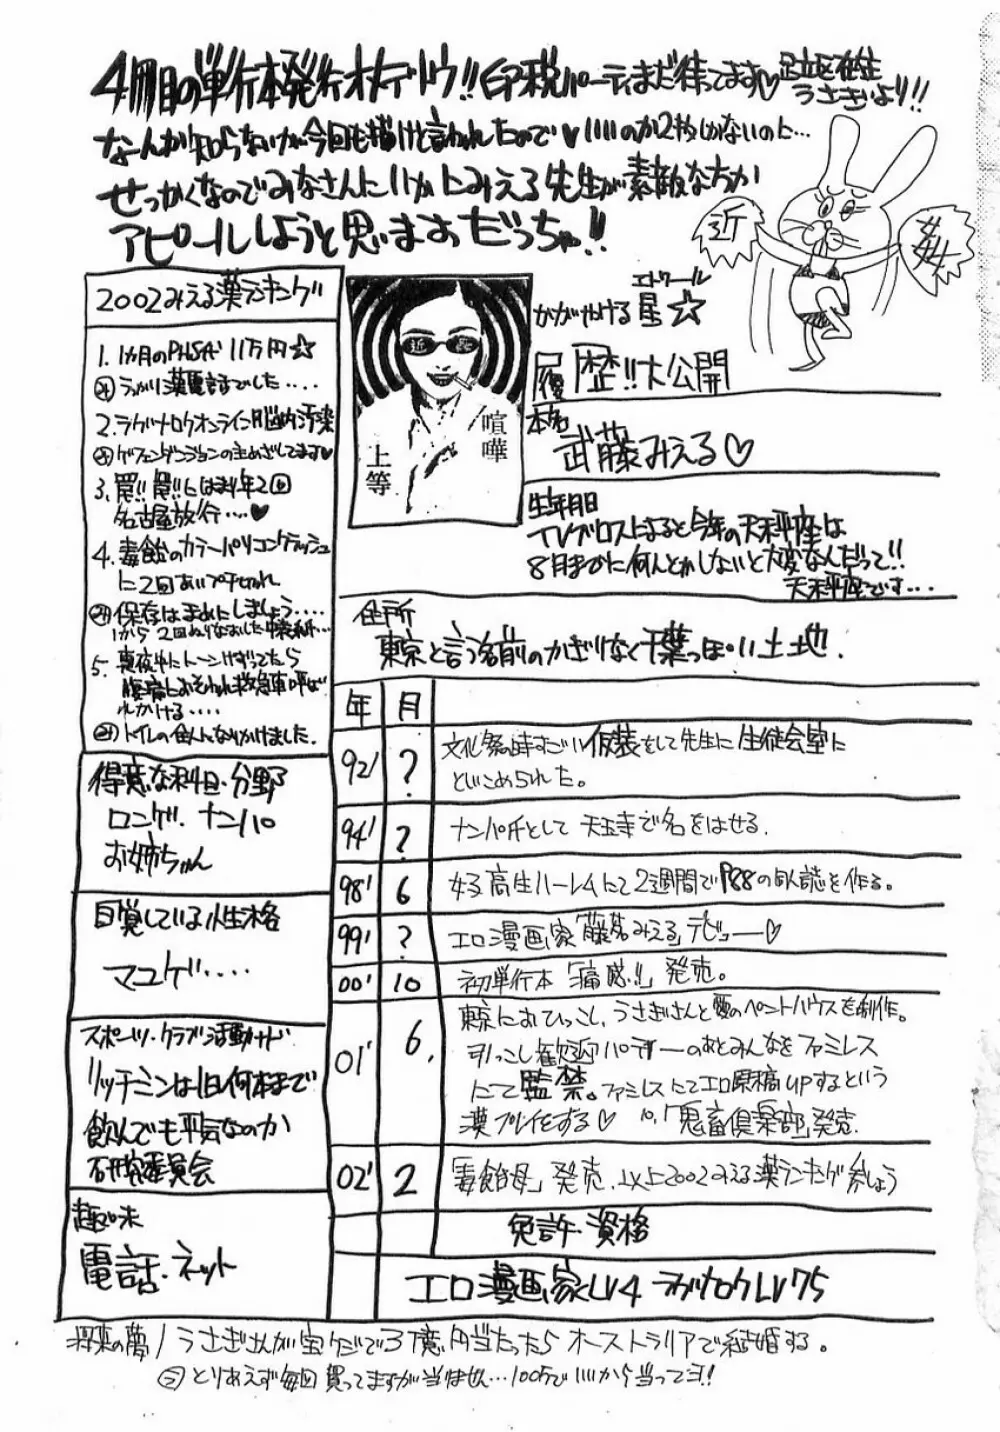 4冊目の単行本発行オメデトウ!!印税パーティまだ待ってます♡足立区在住
うさぎいより!!
なーんか知らないが今回も描けと言われたので♡いいのか2枚しかないのに…
せっかくなのでみなさんにいかにみえる先生が素敵な方か
アピールしようと思いますだっちゃ!!
近
2002みえる漢ランキング
1. 1ヵ月のPHS代 11万円☆
うっかり漢電話でした‥‥
2. ラグナロクオンライン脳内汚染
ゲフェンダンジョンの主めざしてます♥
3. 罠!!罠!!にはまり年2回
名古屋旅行‥‥♥
4. 毒飴のカラーパソコンクラッシュ
に2回
保存はまめにしましょう‥‥
1から2回ぬりなおした
5. 真夜中にトーンけずってたら
腹痛におそわれ救急車呼ば
れかける‥‥
トイレの住人になりかけました.
得意な科目・分野
ロンゲ・ナンパ
お姉ちゃん
自覚している性格
マユゲ‥‥
スポーツ・クラブ活動など
リッチミンは1日何本まで
飲んでも平気なのか
研究委員会
趣味
電話・ネット
近
喧嘩
上等
エトワール
かがやける星☆
履歴!!大公開
本名
武藤みえる♡
生年月日
TVブロスによると今年の天秤座は
8月までに何とかしないと大変なんだって!!
天秤座です‥‥
住所
東京と言う名前のかぎりなく千葉っぽい土地.
年 月
92' ? 文化祭の時すごい仮装をして先生に生徒会室に
とじこめられた。
94' ? ナンパ氏として天王寺で名をはせる.
98' 6 女子高生ハーレムにて2週間でP88の同人誌を作る。
99' ? エロ漫画家「藤みえる」デビュー♡
00' 10 初単行本「痛感!!」発売。
01' 6. 東京におひっこし、うさぎさんと愛のペントハウスを制作。
引っこし歓迎パーティーのあとみんなをファミレス
にて監禁。ファミレスにてエロ原稿UPするという
漢プレイをする♡ 10.「鬼畜倶楽部」発売.
02' 2 「毒飴母」発売.以上2002みえる漢ランキング参しょう
免許・資格
エロ漫画家LV4 ラグナロクLV75
将来の夢/うさぎさんが宝クジで3億円当たったらオーストラリアで結婚する。
とりあえず毎回買ってますが当ません…100万でいいから当ってヨ!!